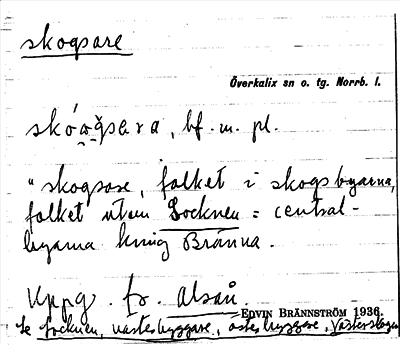 skogsare
Överkalix sn o. tg. Norrb. l.
bf. m. pl.
"skogsare, folket i skogsbyarna,
folket utom Socknen = central-
byarna kring Bränna.
Uppg. fr. Alsån.
EDVIN BRÄNNSTRÖM 1936.
Se socknen, västerbyggare, österbyggare,